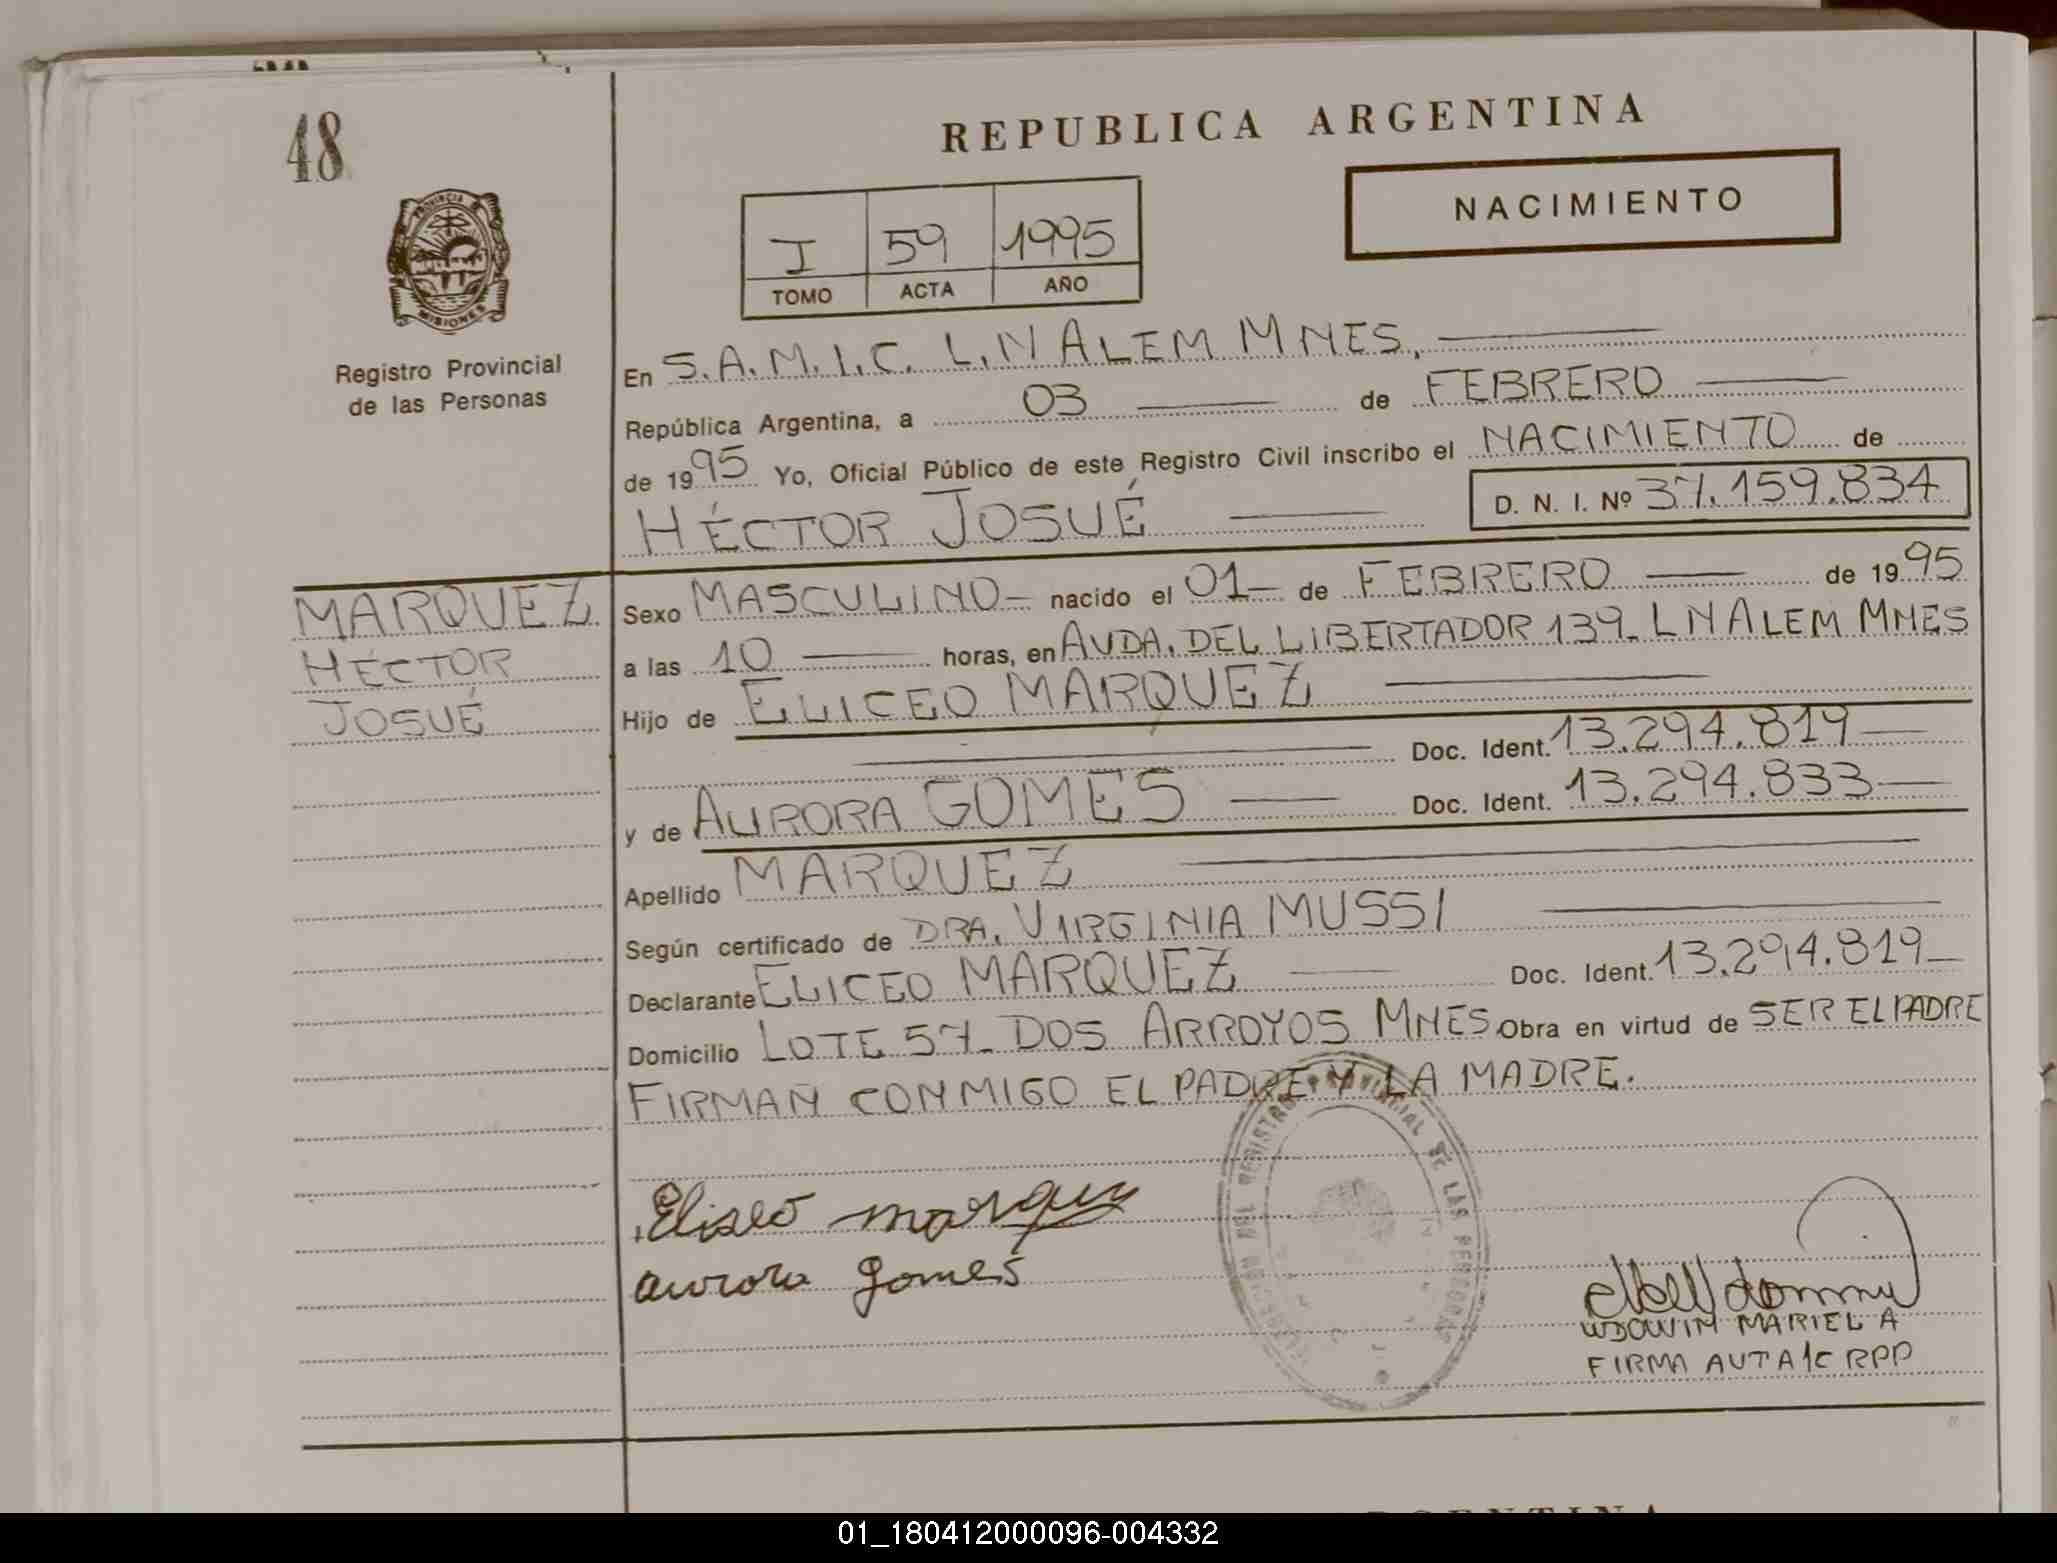 48
REPUBLICA ARGENTINA
NACIMIENTO
I 59 1995
TOMO ACTA AÑO
PROVINCIA DE
MISIONES
Registro Provincial
de las Personas
En S.A.M.I.C. L.N ALEM MNES,
República Argentina, a 03 de FEBRERO
de 1995 Yo, Oficial Público de este Registro Civil inscribo el NACIMIENTO de
HÉCTOR JOSUÉ D. N. I. Nº 37.159.834
MARQUEZ
HÉCTOR
JOSUÉ
Sexo MASCULINO nacido el 01 de FEBRERO de 1995
a las 10 horas, en AVDA. DEL LIBERTADOR 139_ LN ALEM MNES
Hijo de ELICEO MARQUEZ
Doc. Ident. 13.294.819
y de AURORA GOMES Doc. Ident. 13.294.833
Apellido MARQUEZ
Según certificado de DRA. VIRGINIA MUSSI
Declarante ELICEO MARQUEZ Doc. Ident. 13.294.819
Domicilio LOTE 57_ DOS ARROYOS MNES Obra en virtud de SER EL PADRE
FIRMAN CONMIGO EL PADRE Y LA MADRE.
DEL REGISTRO PROVINCIAL DE LAS PERSONAS
Eliseo marquez
aurora gomes
WDOWIN MARIEL A
FIRMA AUTA 1C RPP
01_180412000096-004332